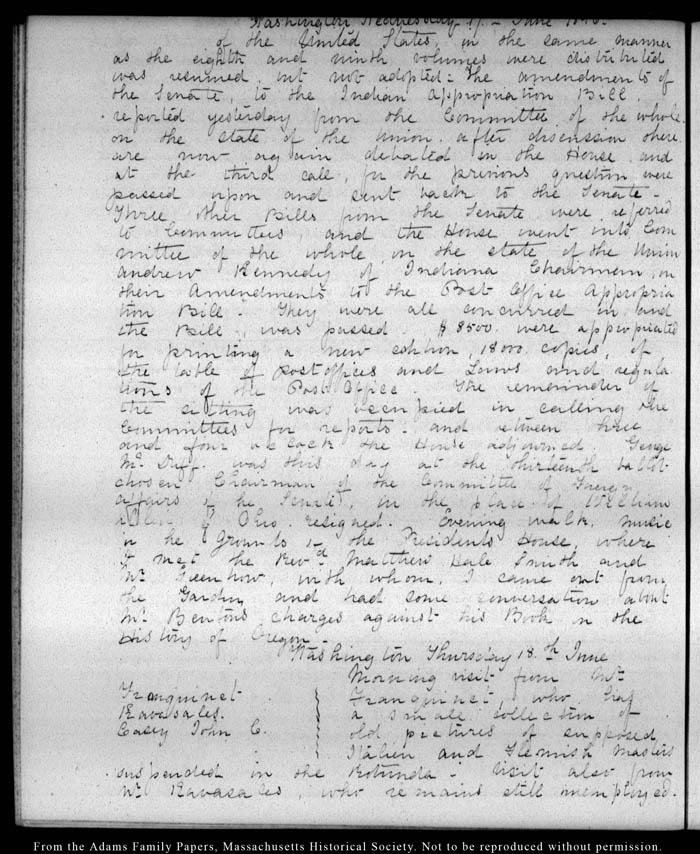 Washington Wednesday 17. June 1846.
of the United States, in the same manner
as the eighth and ninth volumes were distributed
was resumed but not adopted: the amendments of
the Senate, to the Indian Appropriation Bill
reported yesterday from the Committee of the whole
on the state of the Union after discussion there
are now again debated in the House and
at the third call, for the previous question were
passed upon and sent back to the Senate -
Three other Bills from the Senate were referred
to Committees, and the House went into Com
mittee of the whole on the state of the Union
Andrew Kennedy of Indiana Chairman, on
their Amendments to the Post Office Appropria
tion Bill. They were all concurred in and
the Bill, was passed. $8500. were appropriated
for printing a new edition, 18000 copies, of
the table of post offices and Laws and regula
tions of the Post Office. The remainder of
the sitting was occupied in calling the
Committees for reports - and between three
and four o'clock the House adjourned. George
McDuffie was this day at the thirteenth ballot
chosen Chairman of the Committee of Foreign
affairs of the Senate, in the place of William
Allen of Ohio resigned. Evening walk, music
in the Grounds of the Presidents House, where
I met the Revd. Matthew Hale Smith and
Mr. Greenhow, with whom, I came out from
the Garden and had some conversation about
Mr. Benton's charges against his Book on the
History of Oregon -
Washington Thursday 18th. June
Morning visit from Mr
Franquinet
Franquinet, who has
Ravasales.
a small collection of
Casey John C.
old pictures of supposed
Italian and Flemish masters
suspended in the Rotunda - Visit also from
Mr. Ravasales, who remains still unemployed.
From the Adams Family Papers, Massachusetts Historical Society. Not to be reproduced without permission.